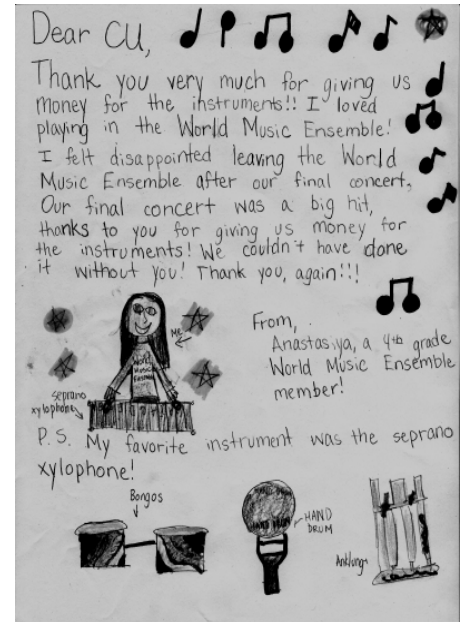 Dear CU,
Thank you very much for giving us
money for the instruments!! I loved
playing in the World Music Ensemble!
I felt disappointed leaving the World
Music Ensemble after our final concert,
Our final concert was a big hit,
thanks to you for giving us money for
the instruments! We couldn't have done
it without you! Thank you, again!!!
From,
Anastasiya, a 4th grade
World Music Ensemble
member!
Me
World
Music
Ensemble
seprano
xylophone
P.S. My favorite instrument was the seprano
xylophone!
Bongos
HAND DRUM
HAND
DRUM
Anklung